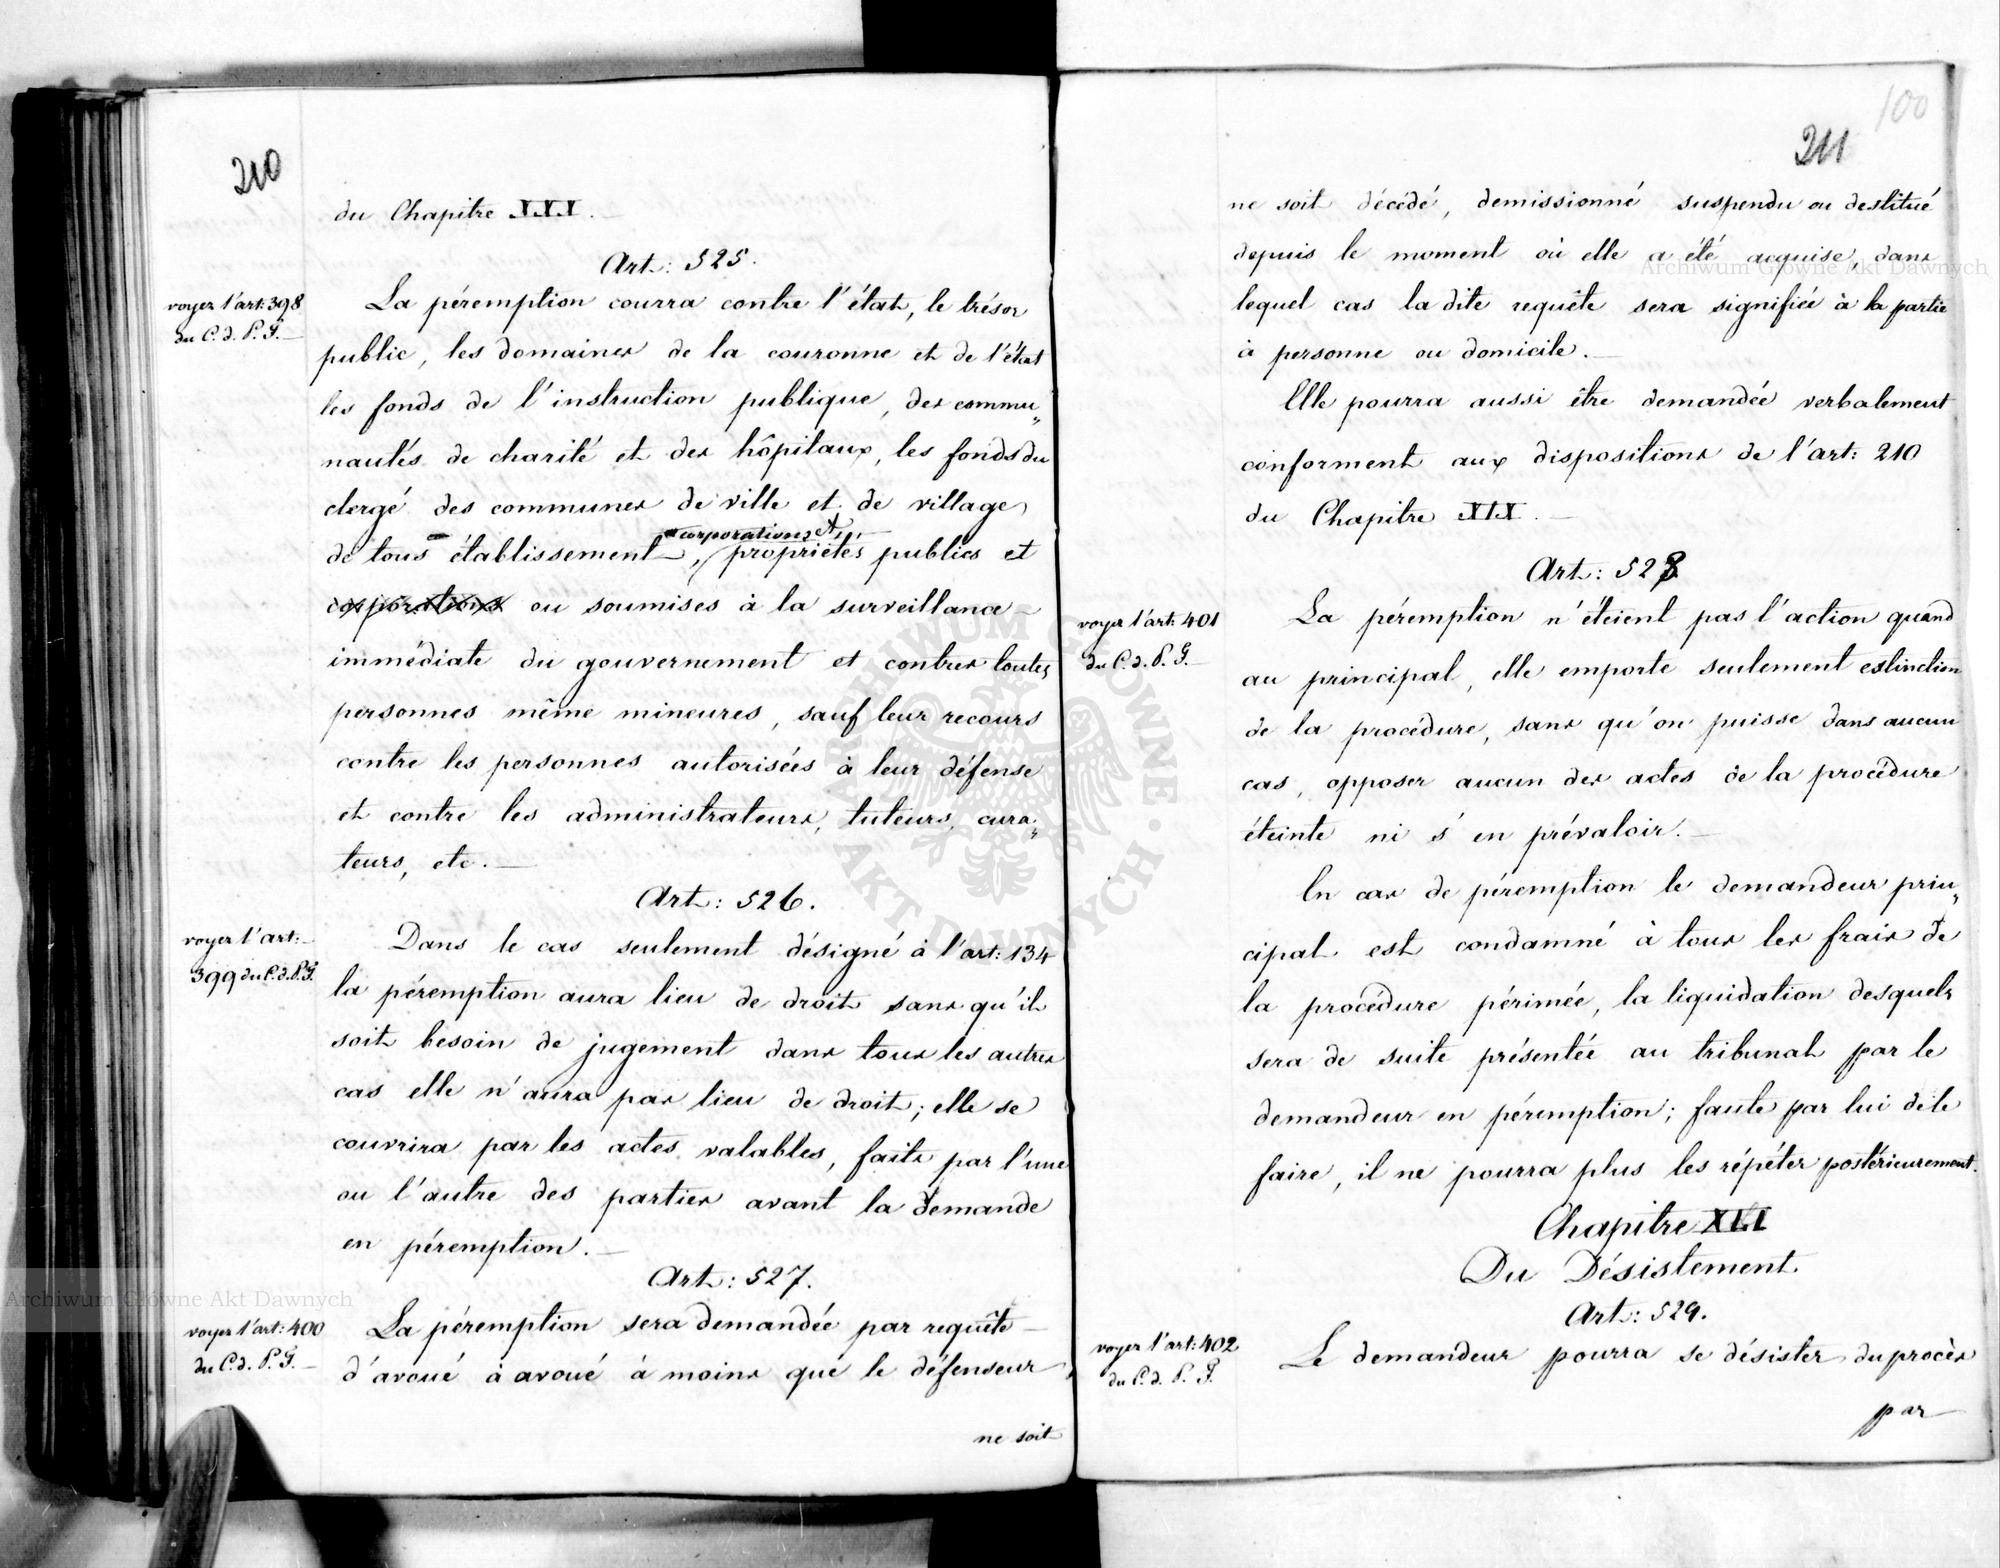 210
du Chapitre XXI.
Art: 525.
voyer l'art: 398
du C. d. P. F.
La péremption courra contre l'état, le trésor
public, les domaines de la couronne et de l'état
les fonds de l'instruction publique, des commu„
nautés de charité et des hôpitaux, les fonds du
clergé des communes de ville et de village
corporations et
de tous établissement, propriétés publics et
corporations ou soumises à la surveillance
immédiate du gouvernement et contres toutes
personnes même mineures, sauf leur recours
contre les personnes autorisées à leur défense
et contre les administrateurs, tuteurs, cura„
teurs, etc.
Art: 526.
voyer l'art:
399 du C. d. P. F.
Dans le cas seulement désigné à l'art: 134
la péremption aura lieu de droit sans qu'il
soit besoin de jugement dans tous les autres
cas elle n'aura pas lieu de droit; elle se
couvrira par les actes valables, faits par l'une
ou l'autre des parties avant la demande
en péremption.
Art: 527.
voyer l'art: 400
du C. d. P. F.
La péremption sera demandée par requête
d'avoué à avoué à moins que le défenseur
ne soit
100
211
ne soit décédé, demissionné suspendu ou destitué
depuis le moment où elle a été acquise, dans
lequel cas la dite requête sera signifiée à la partie
à personne ou domicile.
Elle pourra aussi être demandée verbalement
conforment aux dispositions de l'art: 210
du Chapitre XIX.
Art: 528
voyer l'art: 401
du C. d. P. F.
La péremption n'éteient pas l'action quand
au principal, elle emporte seulement extinction
de la procédure, sans qu'on puisse dans aucun
cas, opposer aucun des actes de la procédure
éteinte ni s'en prévaloir.
En cas de péremption le demandeur prin„
cipal est condamné à tous les frais de
la procédure périmée, la liquidation desquels
sera de suite présentée au tribunal par le
demandeur en péremption; faute par lui de le
faire, il ne pourra plus les répéter postérieurement.
Chapitre XLI
Du Désistement
Art: 529.
voyer l'art: 402
du C. d. P. F.
Le demandeur pourra se désister du procès
par
Archiwum Główne Akt Dawnych
Archiwum Główne Akt Dawnych
ARCHIWUM GŁÓWNE AKT DAWNYCH